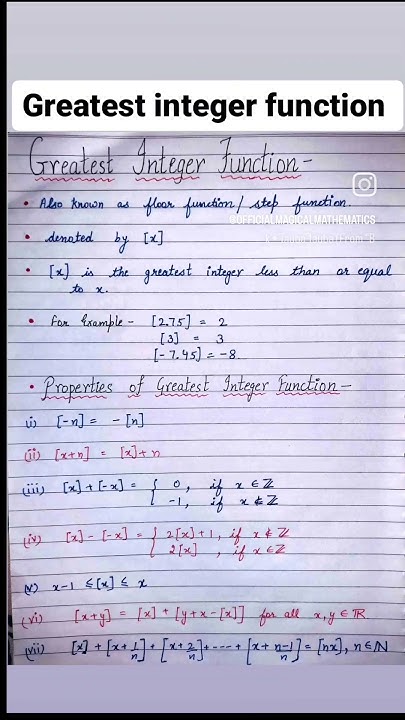 Greatest integer function
Greatest Integer Function-
• Also known as floor function/ step function.
@OFFICIALMAGICALMATHEMATICS
• denoted by [x]
• [x] is the greatest integer less than or equal
to x.
• For Example - [2.75] = 2
[3] = 3
[-7.45] = -8.
• Properties of Greatest Integer Function -
(i) [-n] = -[n]
(ii) [x+n] = [x]+n
(iii) [x]+[-x] = { 0, if x ∈ ℤ
-1, if x ∉ ℤ
(iv) [x] - [-x] = { 2[x]+1, if x ∉ ℤ
2[x] , if x ∈ ℤ
(v) x-1 ≤ [x] ≤ x
(vi) [x+y] = [x] + [y+x-[x]] for all x, y ∈ ℝ.
(vii) [x] + [x+1/n] + [x+2/n] + --- + [x+n-1/n] = [nx], n ∈ ℕ